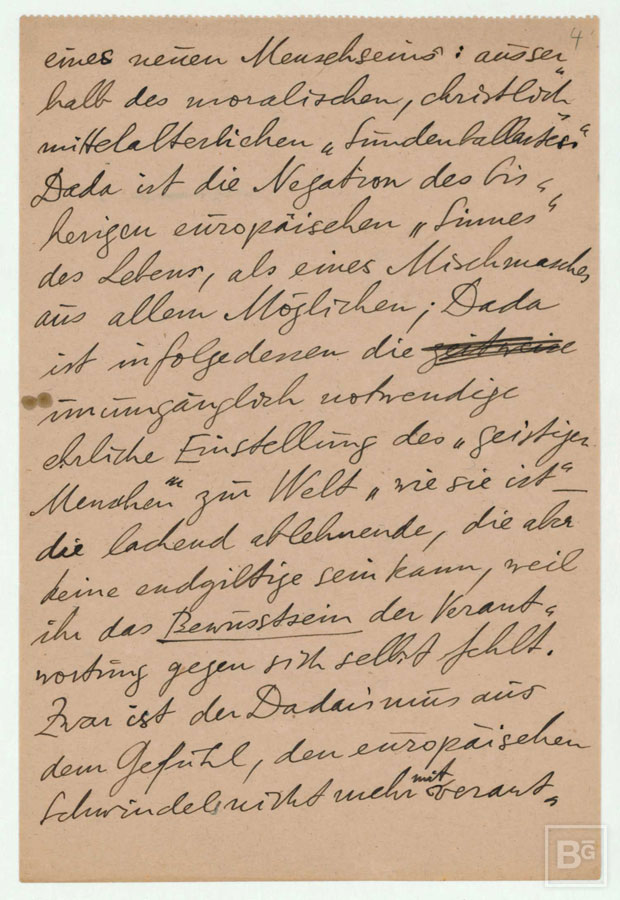 4
eines neuen Menschseins: ausser
halb des moralischen, christlich-
mittelalterlichen „Sündenballastes“
Dada ist die Negation des bis-
herigen europäischen „Sinnes“
des Lebens, als eines Mischmasches
aus allem Möglichen; Dada
ist infolgedessen die zeitweise
unumgänglich notwendige
ehrliche Einstellung des „geistigen
Menschen“ zur Welt „wie sie ist“ –
die lachend ablehnende, die aber
keine endgiltige sein kann, weil
ihr das Bewusstsein der Verant-
wortung gegen sich selbst fehlt.
Zwar ist der Dadaismus aus
dem Gefühl, den europäischen
Schwindel nicht mehr mit verant-
BG